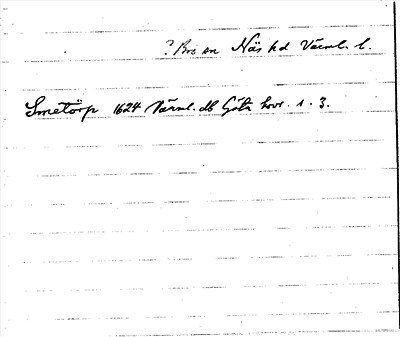 ? Bro sn Näs hd Värml. l.
Smetorp 1624 Värml. db Göta hovr. s. 3.